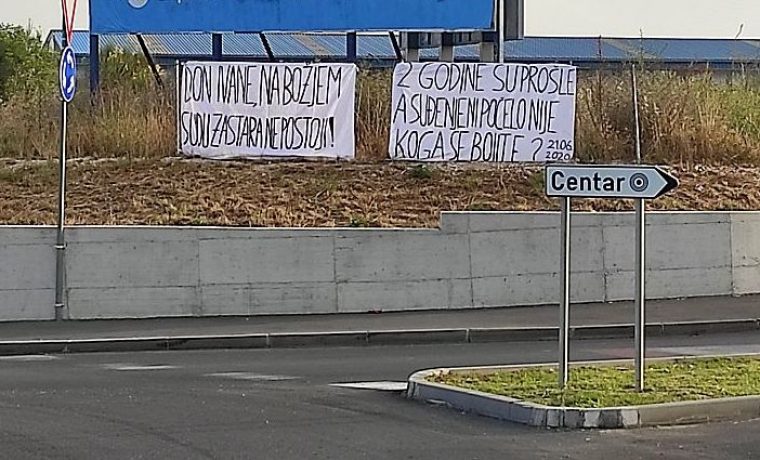 DON IVANE, NA BOŽJEM
SUDU ZASTARA NE POSTOJI!
2 GODINE SU PROŠLE
A SUĐENJE NI POČELO NIJE
KOGA SE BOJITE?
21.06
2020.
Centar